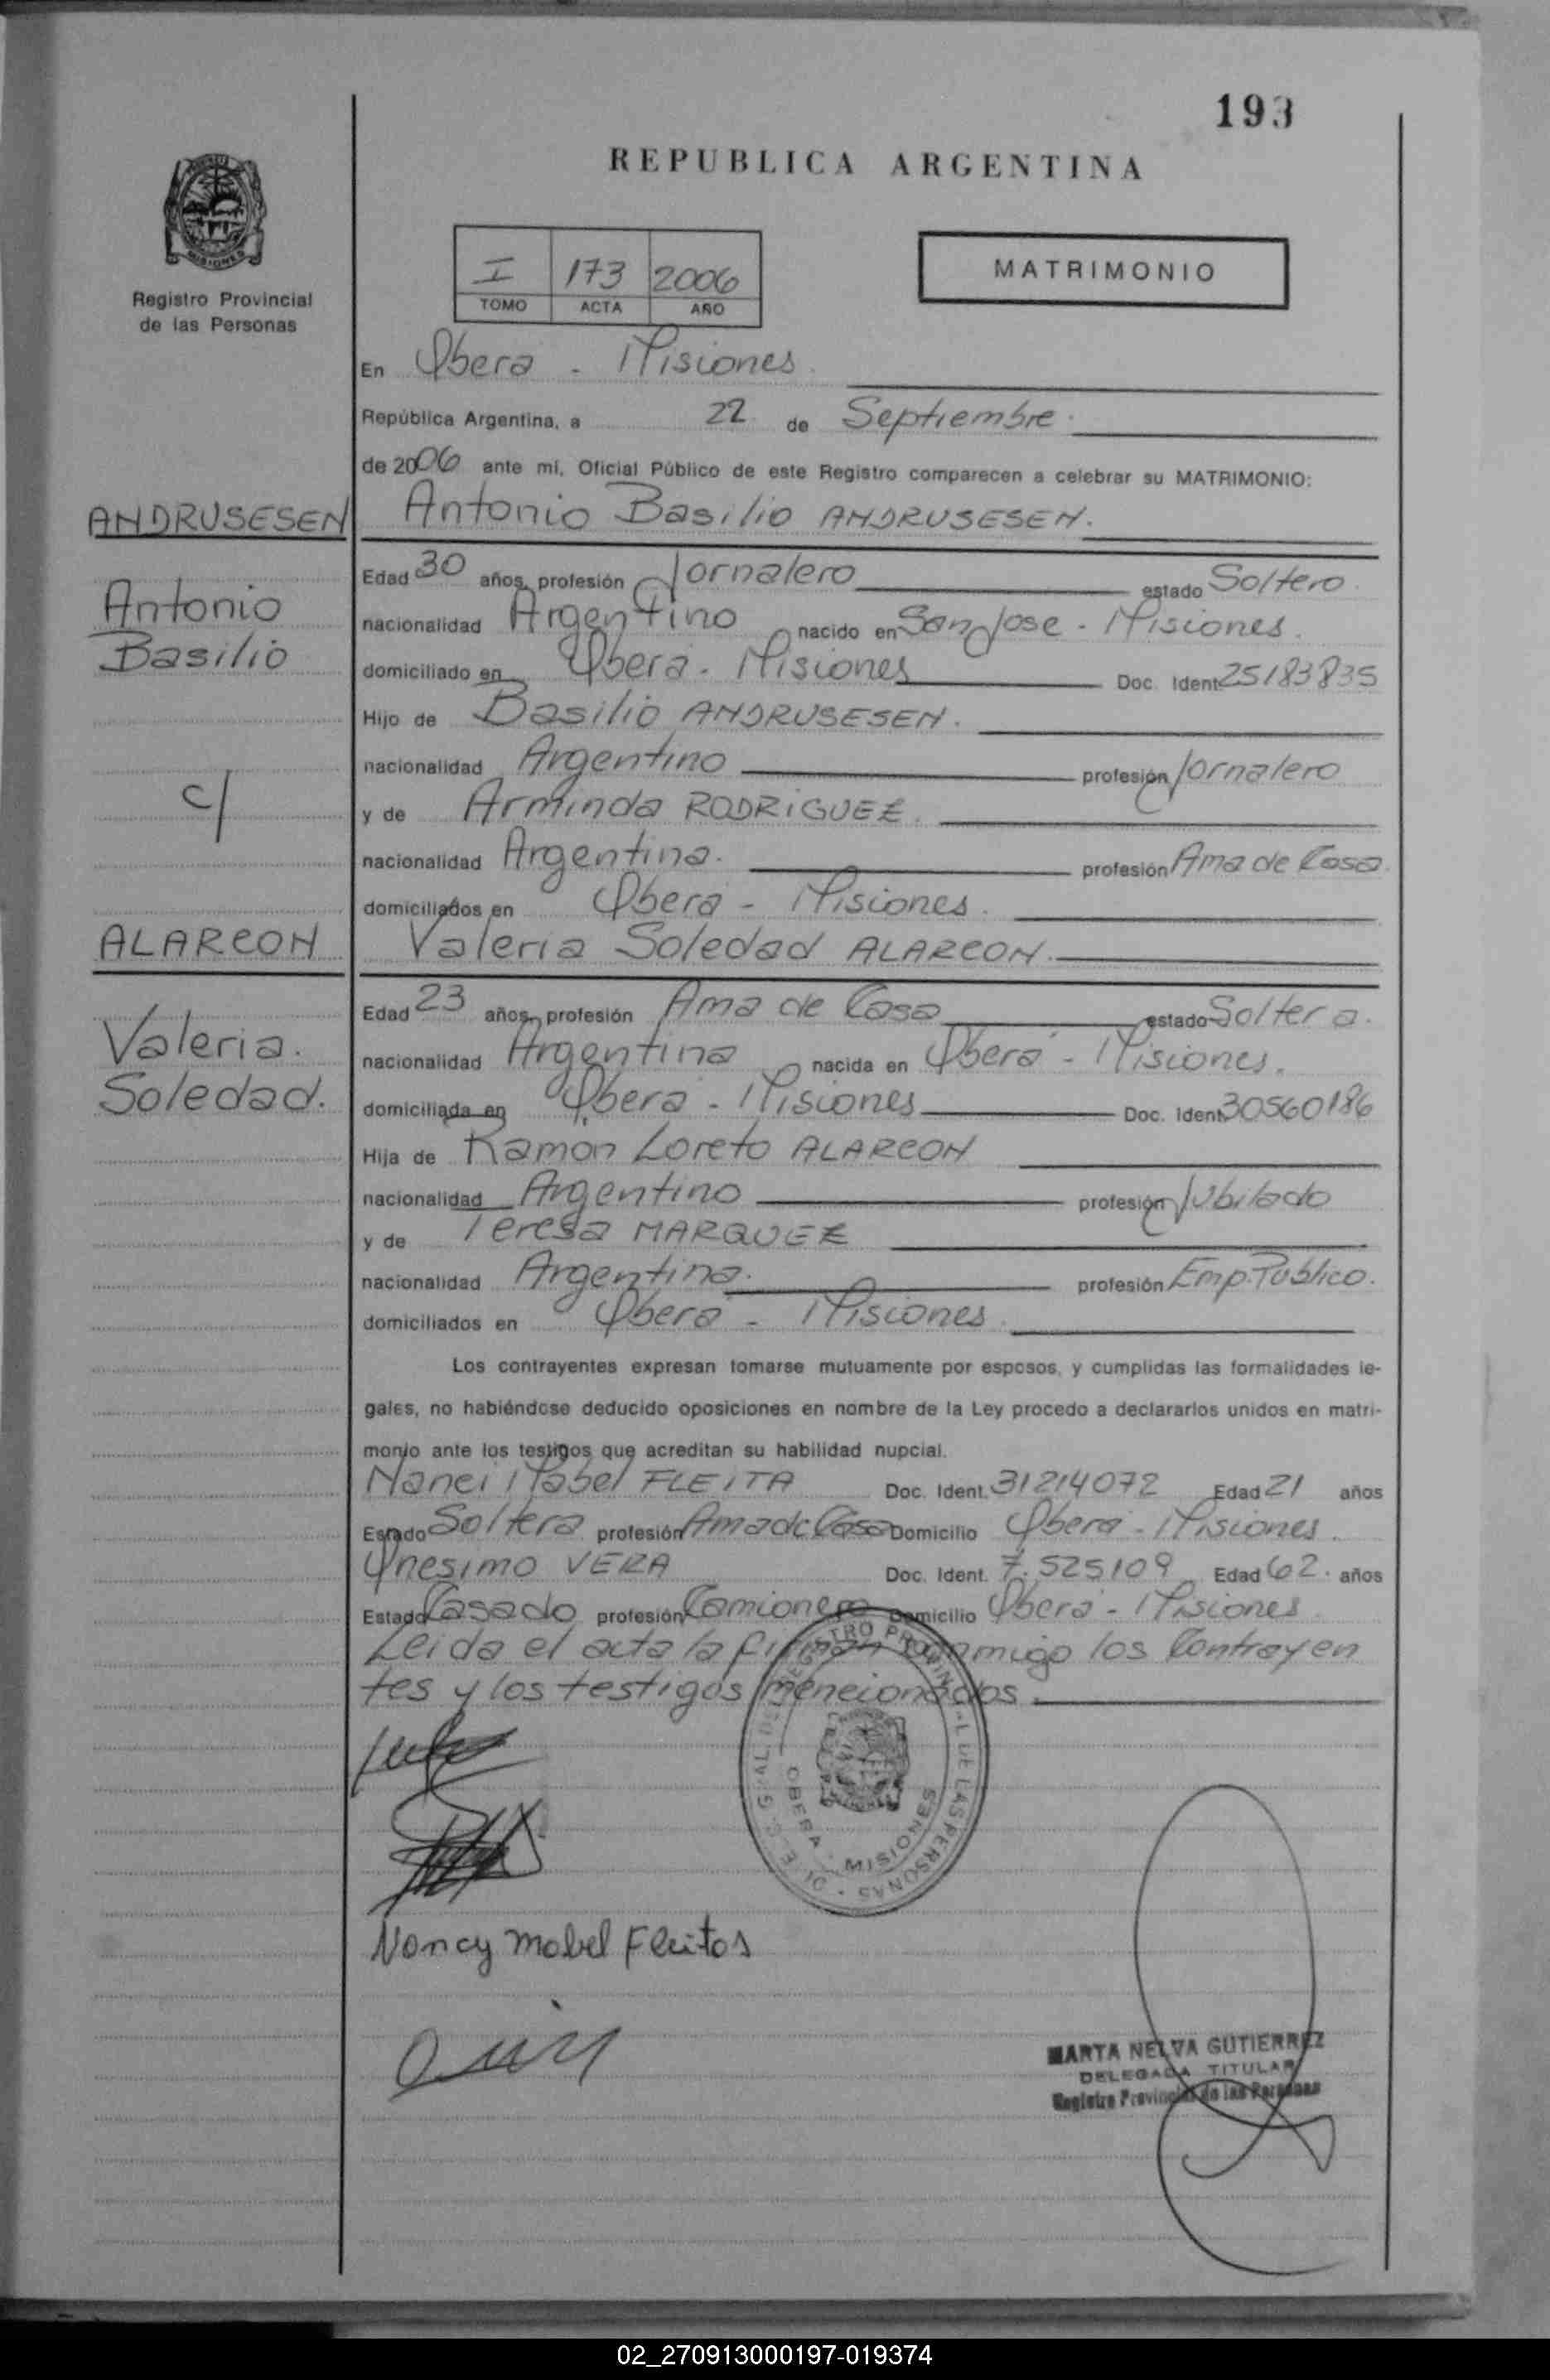 193
REPUBLICA ARGENTINA
MISIONES
Registro Provincial
de las Personas
I 173 2006
TOMO ACTA AÑO
MATRIMONIO
En Obera - Misiones.
República Argentina, a 22 de Septiembre.
de 2006 ante mí, Oficial Público de este Registro comparecen a celebrar su MATRIMONIO:
ANDRUSESEN
Antonio Basilio ANDRUSESEN.
Antonio
Basilio
c/
Edad 30 años, profesión Jornalero estado Soltero.
nacionalidad Argentino nacido en San Jose - Misiones.
domiciliado en Obera - Misiones Doc. Ident 25183835
Hijo de Basilio ANDRUSESEN.
nacionalidad Argentino profesión Jornalero
y de Arminda RODRIGUEZ.
nacionalidad Argentina. profesión Ama de Casa.
domiciliados en Obera - Misiones.
ALARCON
Valeria Soledad ALARCON.
Valeria.
Soledad.
Edad 23 años, profesión Ama de Casa estado Soltera.
nacionalidad Argentina nacida en Obera - Misiones.
domiciliada en Obera - Misiones Doc. Ident 30560186
Hija de Ramon Loreto ALARCON
nacionalidad Argentino profesión Jubilado
y de Teresa MARQUEZ
nacionalidad Argentina. profesión Emp. Publico.
domiciliados en Obera - Misiones.
Los contrayentes expresan tomarse mutuamente por esposos, y cumplidas las formalidades le-
gales, no habiéndose deducido oposiciones en nombre de la Ley procedo a declararlos unidos en matri-
monio ante los testigos que acreditan su habilidad nupcial.
Nanci Mabel FLEITA Doc. Ident. 31214072 Edad 21 años
Estado Soltera profesión Ama de Casa Domicilio Obera - Misiones.
Onesimo VERA Doc. Ident. 7.525109 Edad 62. años
Estado Casado profesión Camionero Domicilio Obera - Misiones.
Leida el acta la firman conmigo los Contrayen
tes y los testigos mencionados
REGISTRO PROVINCIAL DE LAS PERSONAS
OBERA - MISIONES
Nancy Mabel Fleitas
MARTA NELVA GUTIERREZ
DELEGADA TITULAR
Registro Provincial de las Personas
02_270913000197-019374